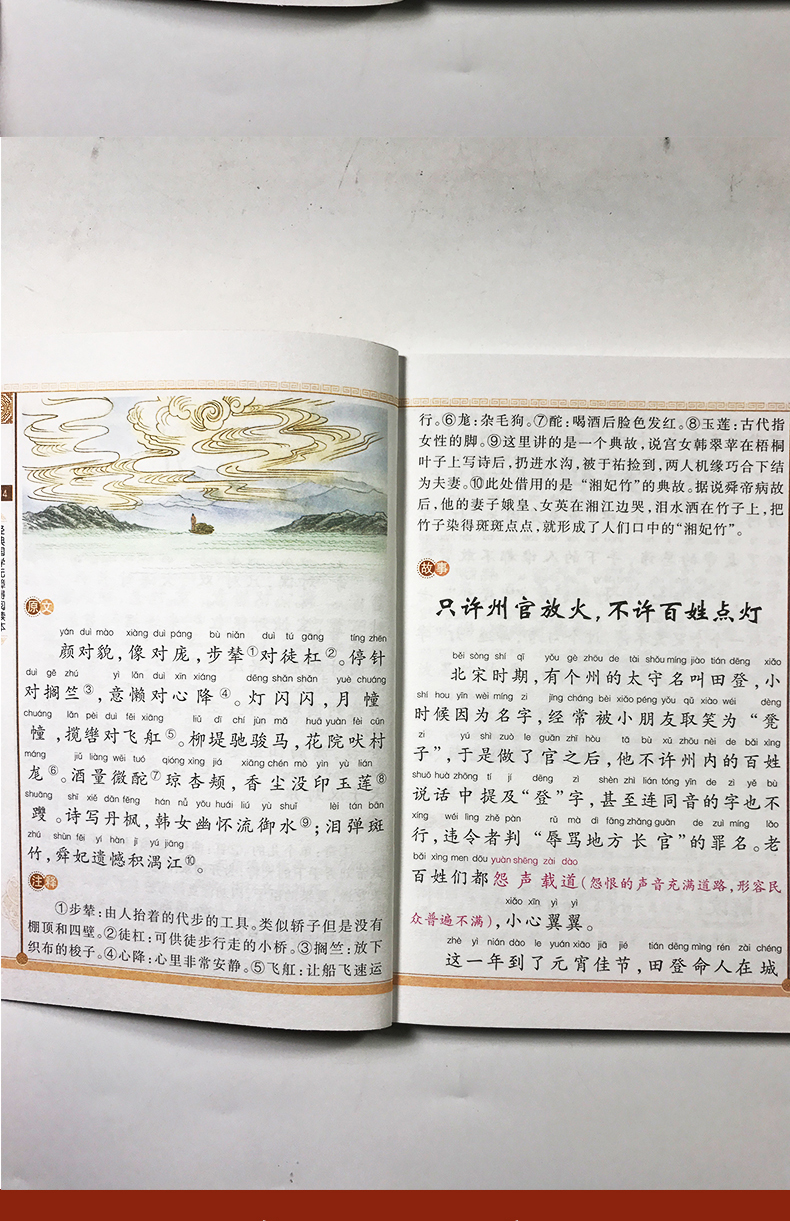 4
经典国学无障碍阅读本
原文
yán duì mào xiàng duì páng bù niǎn duì tú gāng tíng zhēn
颜对貌，像对庞，步辇①对徒杠②。停针
duì gē zhú yì lǎn duì xīn xiáng dēng shǎn shǎn yuè chuáng
对搁竺③，意懒对心降④。灯闪闪，月幢
chuáng lǎn pèi duì fēi xiāng liǔ dī chí jùn mǎ huā yuàn fèi cūn
幢，揽辔对飞舡⑤。柳堤驰骏马，花院吠村
máng jiǔ liàng wēi tuó qióng xìng jiá xiāng chén mò yìn yù lián
尨⑥。酒量微酡⑦琼杏颊，香尘没印玉莲⑧
shuāng shī xiě dān fēng hán nǚ yōu huái liú yù shuǐ lèi tán bān
𨇯。诗写丹枫，韩女幽怀流御水⑨；泪弹斑
zhú shùn fēi yí hàn jī yú jiāng
竹，舜妃遗憾积渭江⑩。
注释
①步辇：由人抬着的代步的工具。类似轿子但是没有
棚顶和四壁。②徒杠：可供徒步行走的小桥。③搁竺：放下
织布的梭子。④心降：心里非常安静。⑤飞舡：让船飞速运
行。⑥尨：杂毛狗。⑦酡：喝酒后脸色发红。⑧玉莲：古代指
女性的脚。⑨这里讲的是一个典故，说宫女韩翠苹在梧桐
叶子上写诗后，扔进水沟，被于祐捡到，两人机缘巧合下结
为夫妻。⑩此处借用的是“湘妃竹”的典故。据说舜帝病故
后，他的妻子娥皇、女英在湘江边哭，泪水洒在竹子上，把
竹子染得斑斑点点，就形成了人们口中的“湘妃竹”。
故事
只许州官放火，不许百姓点灯
běi sòng shí qī yǒu gè zhōu de tài shǒu míng jiào tián dēng xiǎo
北宋时期，有个州的太守名叫田登，小
shí hou yīn wèi míng zi jīng cháng bèi xiǎo péng yǒu qǔ xiào wéi dèng
时候因为名字，经常被小朋友取笑为“凳
zi yú shì zuò le guān zhī hòu tā bù xǔ zhōu nèi de bǎi xìng
子”，于是做了官之后，他不许州内的百姓
shuō huà zhōng tí jí dēng zì shèn zhì lián tóng yīn de zì yě bù
说话中提及“登”字，甚至连同音的字也不
xíng wéi lìng zhě pàn rǔ mà dì fāng zhǎng guān de zuì míng lǎo
行，违令者判“辱骂地方长官”的罪名。老
bǎi xìng men dōu yuàn shēng zài dào
百姓们都怨声载道（怨恨的声音充满道路，形容民
xiǎo xīn yì yì
众普遍不满），小心翼翼。
zhè yì nián dào le yuán xiāo jiā jié tián dēng mìng rén zài chéng
这一年到了元宵佳节，田登命人在城